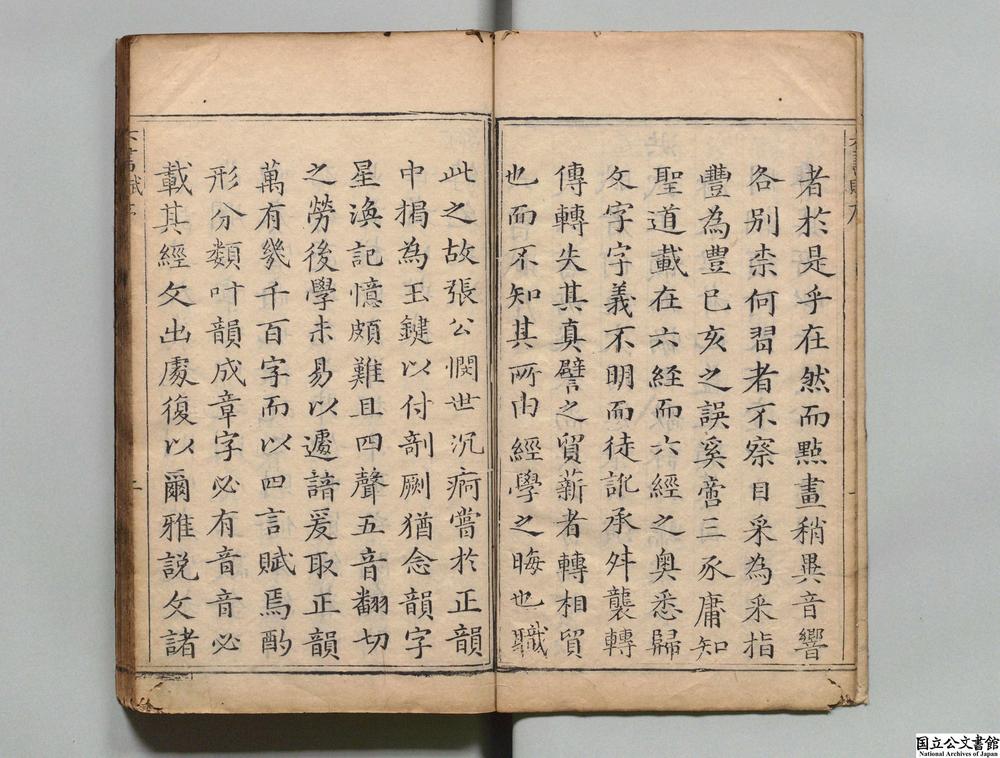 者於是乎在然而點畫稍異音響
各別柰何習者不察目采為釆指
豐為豊已亥之誤奚啻三豕庸知
聖道載在六經而六經之奧悉歸
文字字義不明而徒訛承舛襲轉
傳轉失其真譬之貿薪者轉相貿
也而不知其所由經學之晦也職
此之故張公憫世沉痾嘗於正韻
中揭為玉鍵以付剞劂猶念韻字
星渙記憶頗難且四聲五音翻切
之勞後學未易以遽諳爰取正韻
萬有幾千百字而以四言賦焉酌
形分類叶韻成章字必有音音必
載其經文出處復以爾雅說文諸
六書賦 序
二
国立公文書館
National Archives of Japan